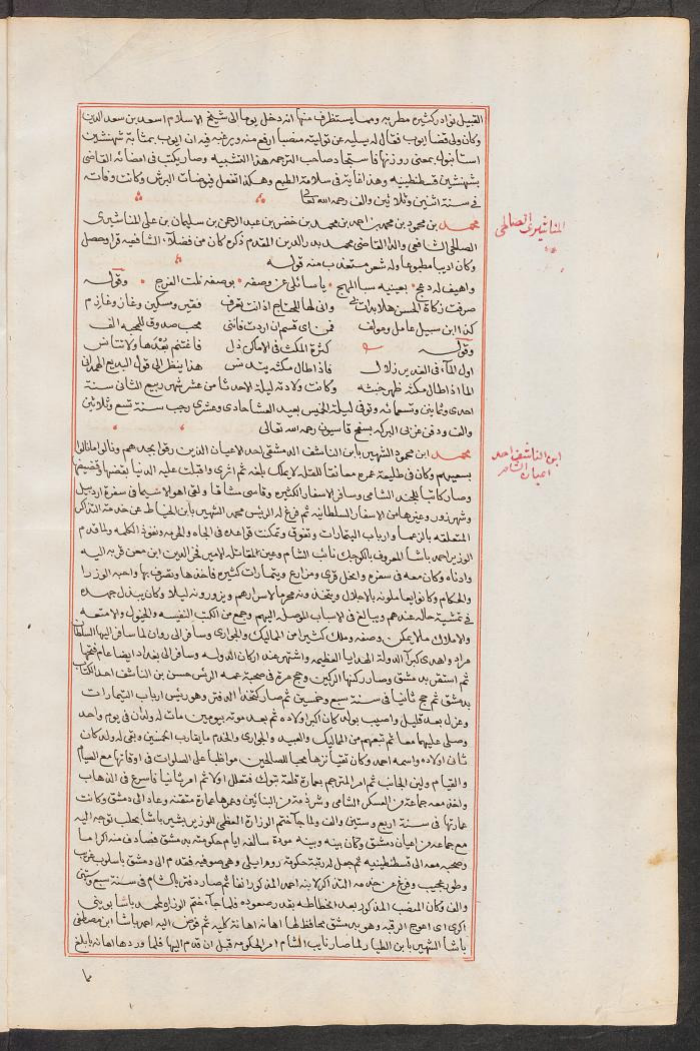 القبيل نوادر كثيرة مطربه ومما يستظرف منها انه دخل يوما الى شيخ الاسلام اسعد بن سعد الدين
وكان ولى قضا ايوب فقال له يسليه عن توليته منصبا ارفع منه ويرغبه فيه ان ايوب بمثابة شهنشين
استانبول بمعنى روزنها فاستجاد صاحب الترجمه هذا التشبيه وصار يكتب فى امضائه القاضى
بشهنشين قسطنطينيه وهذا غاية فى سلامة الطبع وهكذا تفعل فيوضات البرش وكانت وفاته
فى سنة اثنين وثلاثين والف رحمه الله تعالى
محمد بن محمود بن محمد بن احمد بن محمد بن خضر بن عبد الرحمن بن سليمان بن على المناشيرى
المناشيرى الصالحى
الصالحى الشافعى والد القاضى محمد بدر الدين المقدم ذكره كان من فضلاء الشافعيه قرا وحصل
وكان اديبا مطبوعا وله شعر مستعذب منه قوله
واهيف لدعج بعينيه سبا المهج يا سائلى عن وصفه بوصفه نلت الفرج وقوله
صرفت زكاة الحسن هلا بدات بى وانى لها المحتاج اذ انت تعرف فقير ومسكين وغاز وغارم
كذا ابن سبيل عامل ومولف فمن اى قسم ان اردت فاننى محب صدوق للمحبه الف
وقوله كثرة المكث فى الاماكن ذل فاغتنم بعدها ولا تتانس
اول الماء فى الغدير زلال فاذا طال مكثه يتدنس هذا ينظر الى قول البديع الهمدانى
الماء اذا طال مكثه ظهر خبثه وكانت ولادته ليلة الاحد ثامن عشر شهر ربيع الثانى سنة
احدى وثمانين وتسعمائه وتوفى ليلة الخميس بعيد العشا حادى وعشرى رجب سنة تسع وثلاثين
والف ودفن غربى البركه بسفح قاسيون رحمه الله تعالى
محمد ابن محمود الشهير بابن الناشف الدمشقى احد الاعيان الذين رقوا بجدهم ونالوا ما نالوا
ابن الناشف احد
اعيان الشام
بسعيهم وكان فى طليعة عمره معانقا للقله لا يملك بلغه ثم اثرى واقبلت عليه الدنيا بقضها وقضيضها
وصار كاتبا للجند الشامى وسافر الاسفار الكثيره وقاسى مشاقا ولقى اهوالا سيما فى سفرة اردبيل
وشهرزور وغيرها من الاسفار السلطانيه ثم فرغ له الريس محمد الشهير بابن الخياط عن خدمة التذاكر
المتعلقه بالزعما وارباب التيمارات وتفوق وتمكنت قواعده فى الجاه والحرمه ونفوذ الكلمه ولما قدم
الوزير احمد باشا المعروف بالكوجك نائب الشام وعين لمقاتلة الامير فخر الدين ابن معن قربه اليه
وادناه وكان معه فى سفره وانحل قرى ومزارع وتيمارات كثيره فاخذها وتصرف بها واحبه الوزرا
والحكام وكانوا يعاملونه بالاجلال ويتخذونه محرما لاسرارهم ويزورونه ليلا وكان يبذل جهده
فى تمشية حاله عندهم ويبالغ فى الاسباب الموصله اليهم وجمع من الكتب النفيسه والخيول والامتعه
والاملاك ما لا يمكن وصفه وملك كثيرا من المماليك والجوارى وسافر الى روان لما سافر اليها السلطان
مراد واهدى كبراء الدولة الهدايا العظيمه واشتهر عند اركان الدوله وسافر الى بغداد ايضا عام فتحها
ثم استقر بدمشق وصار ركنها الركين وحج مرة فى صحبة عمه الريس حسن بن الناشف احد الكتاب
بدمشق ثم حج ثانيا فى سنة سبع وخمسين ثم صار كتخدا الدفتر وهو ريس ارباب التيمارات
وعزل بعد قليل واصيب بولد كان اكبر اولاده ثم بعد موته بيومين مات له ولدان فى يوم واحد
وصلى عليهما معا ثم تبعهم من المماليك والعبيد والجوارى والخدم ما يقارب الخمسين وبقى له ولد كان
ثانى اولاده واسمه احمد وكان تقيا نزها محبا للصالحين مواظبا على الصلوات فى اوقاتها مع الصيام
والقيام ولين الجانب ثم امر المترجم بعمارة قلعة تبوك فتعلل اولا ثم امر ثانيا فاسرع فى الذهاب
واخذ معه جماعة من العسكر الشامى وشرذمة من البنائين وعمرها عمارة متقنه وعاد الى دمشق وكانت
عمارتها فى سنة اربع وستين والف ولما جاء ختم الوزارة العظمى للوزير بشير باشا بحلب توجه اليه
مع جماعة من اعيان دمشق وكان بينه وبينه مودة سالفه ايام حكومته بدمشق فصادف منه اكراما
وصحبه معه الى قسطنطينيه ثم حصل له رتبة حكومة روم ايلى وهى صوفيه فقدم الى دمشق باسلوب غريب
وطور عجيب وفرغ عن خدمة التذاكر لابنه احمد المذكور انفا ثم صار دفتر بالشام فى سنة سبع وستين
والف وكان المنصب المذكور بعد انحطاطه بعد صعوده فلما جاء ختم الوزاره لمحمد باشا بوينى
اكرى اى اعوج الرقبه وهو بدمشق محافظ لها اهانه اهانة كليه ثم فوض اليه احمد باشا ابن مصطفى
باشا الشهير بابن الطيار لما صار نايب الشام امر الحكومه قبل ان قدم اليها فلما وردها اهانه بابلغ